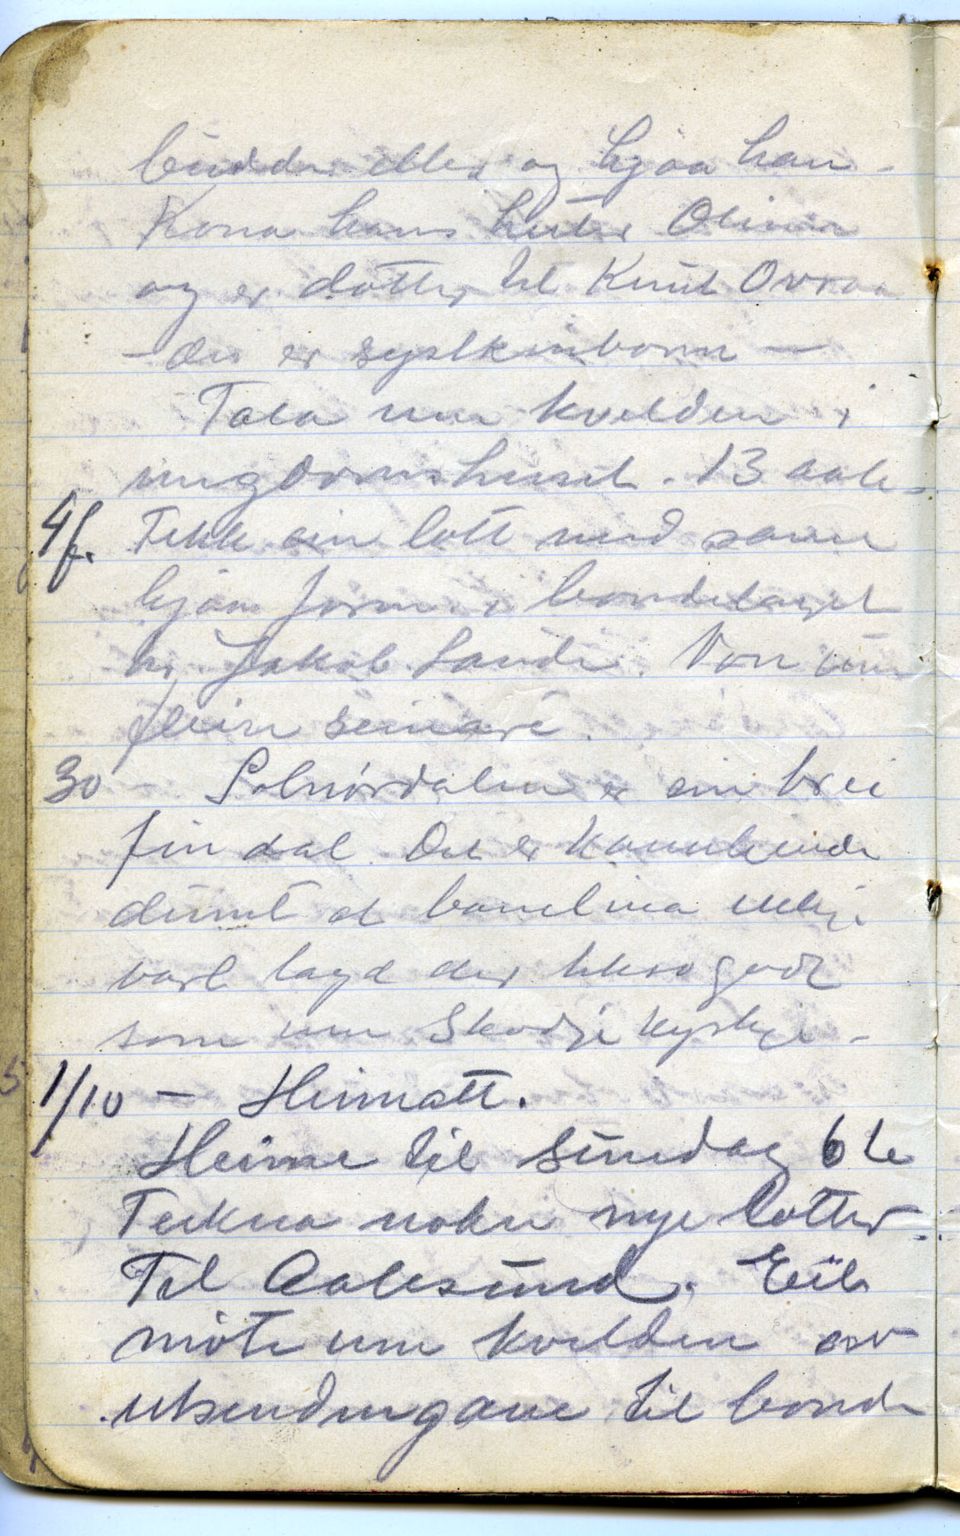 budde eller og hjaa han -
Kona hans heiter Olina
og er dotter til Knut Ovraa
- dei er syslkinborn -
Tala um kvelden i
ungdomshuset. 13 aale
4 f. Fekk ein lott med same
hjaa form. i bondelaget
hr. Jakob Lande. Von um
fleire seinare.
30 - Solnørdalen er ein brei
fin dal. Det er kannhenda
dumt at banelina ikkje
vart lagd der likso godt
som um Skodje kyrkje -
1/10 - Heimatt.
Heime til sundag 6te
Tekna nokre nye lotter
Til Aalesund. Eit
møte um kvelden av
utsendingane til bonde